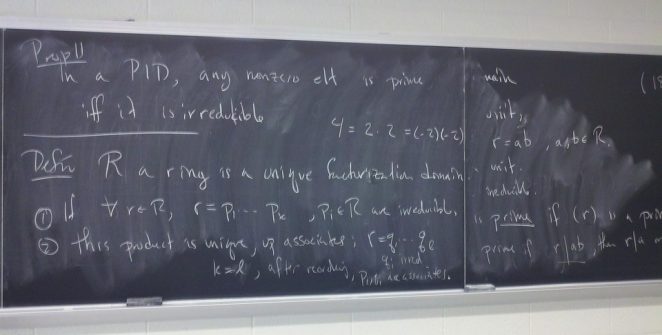 Prop 11
In a PID, any nonzero elt is prime
iff it is irreducible
4 = 2 · 2 = (-2)(-2)
Defn R a ring is a unique factorization domain
① If ∀ r ∈ R, r = p₁ ... pₖ, pᵢ ∈ R are irreducible,
② this product is unique, up associates; r = q₁ ... qₗ
qᵢ irred
k = l, after reording, are associates.
unit,
r = ab, a,b ∈ R.
unit.
irreducible.
is prime if (r) is a
prime if r|ab, then r/a